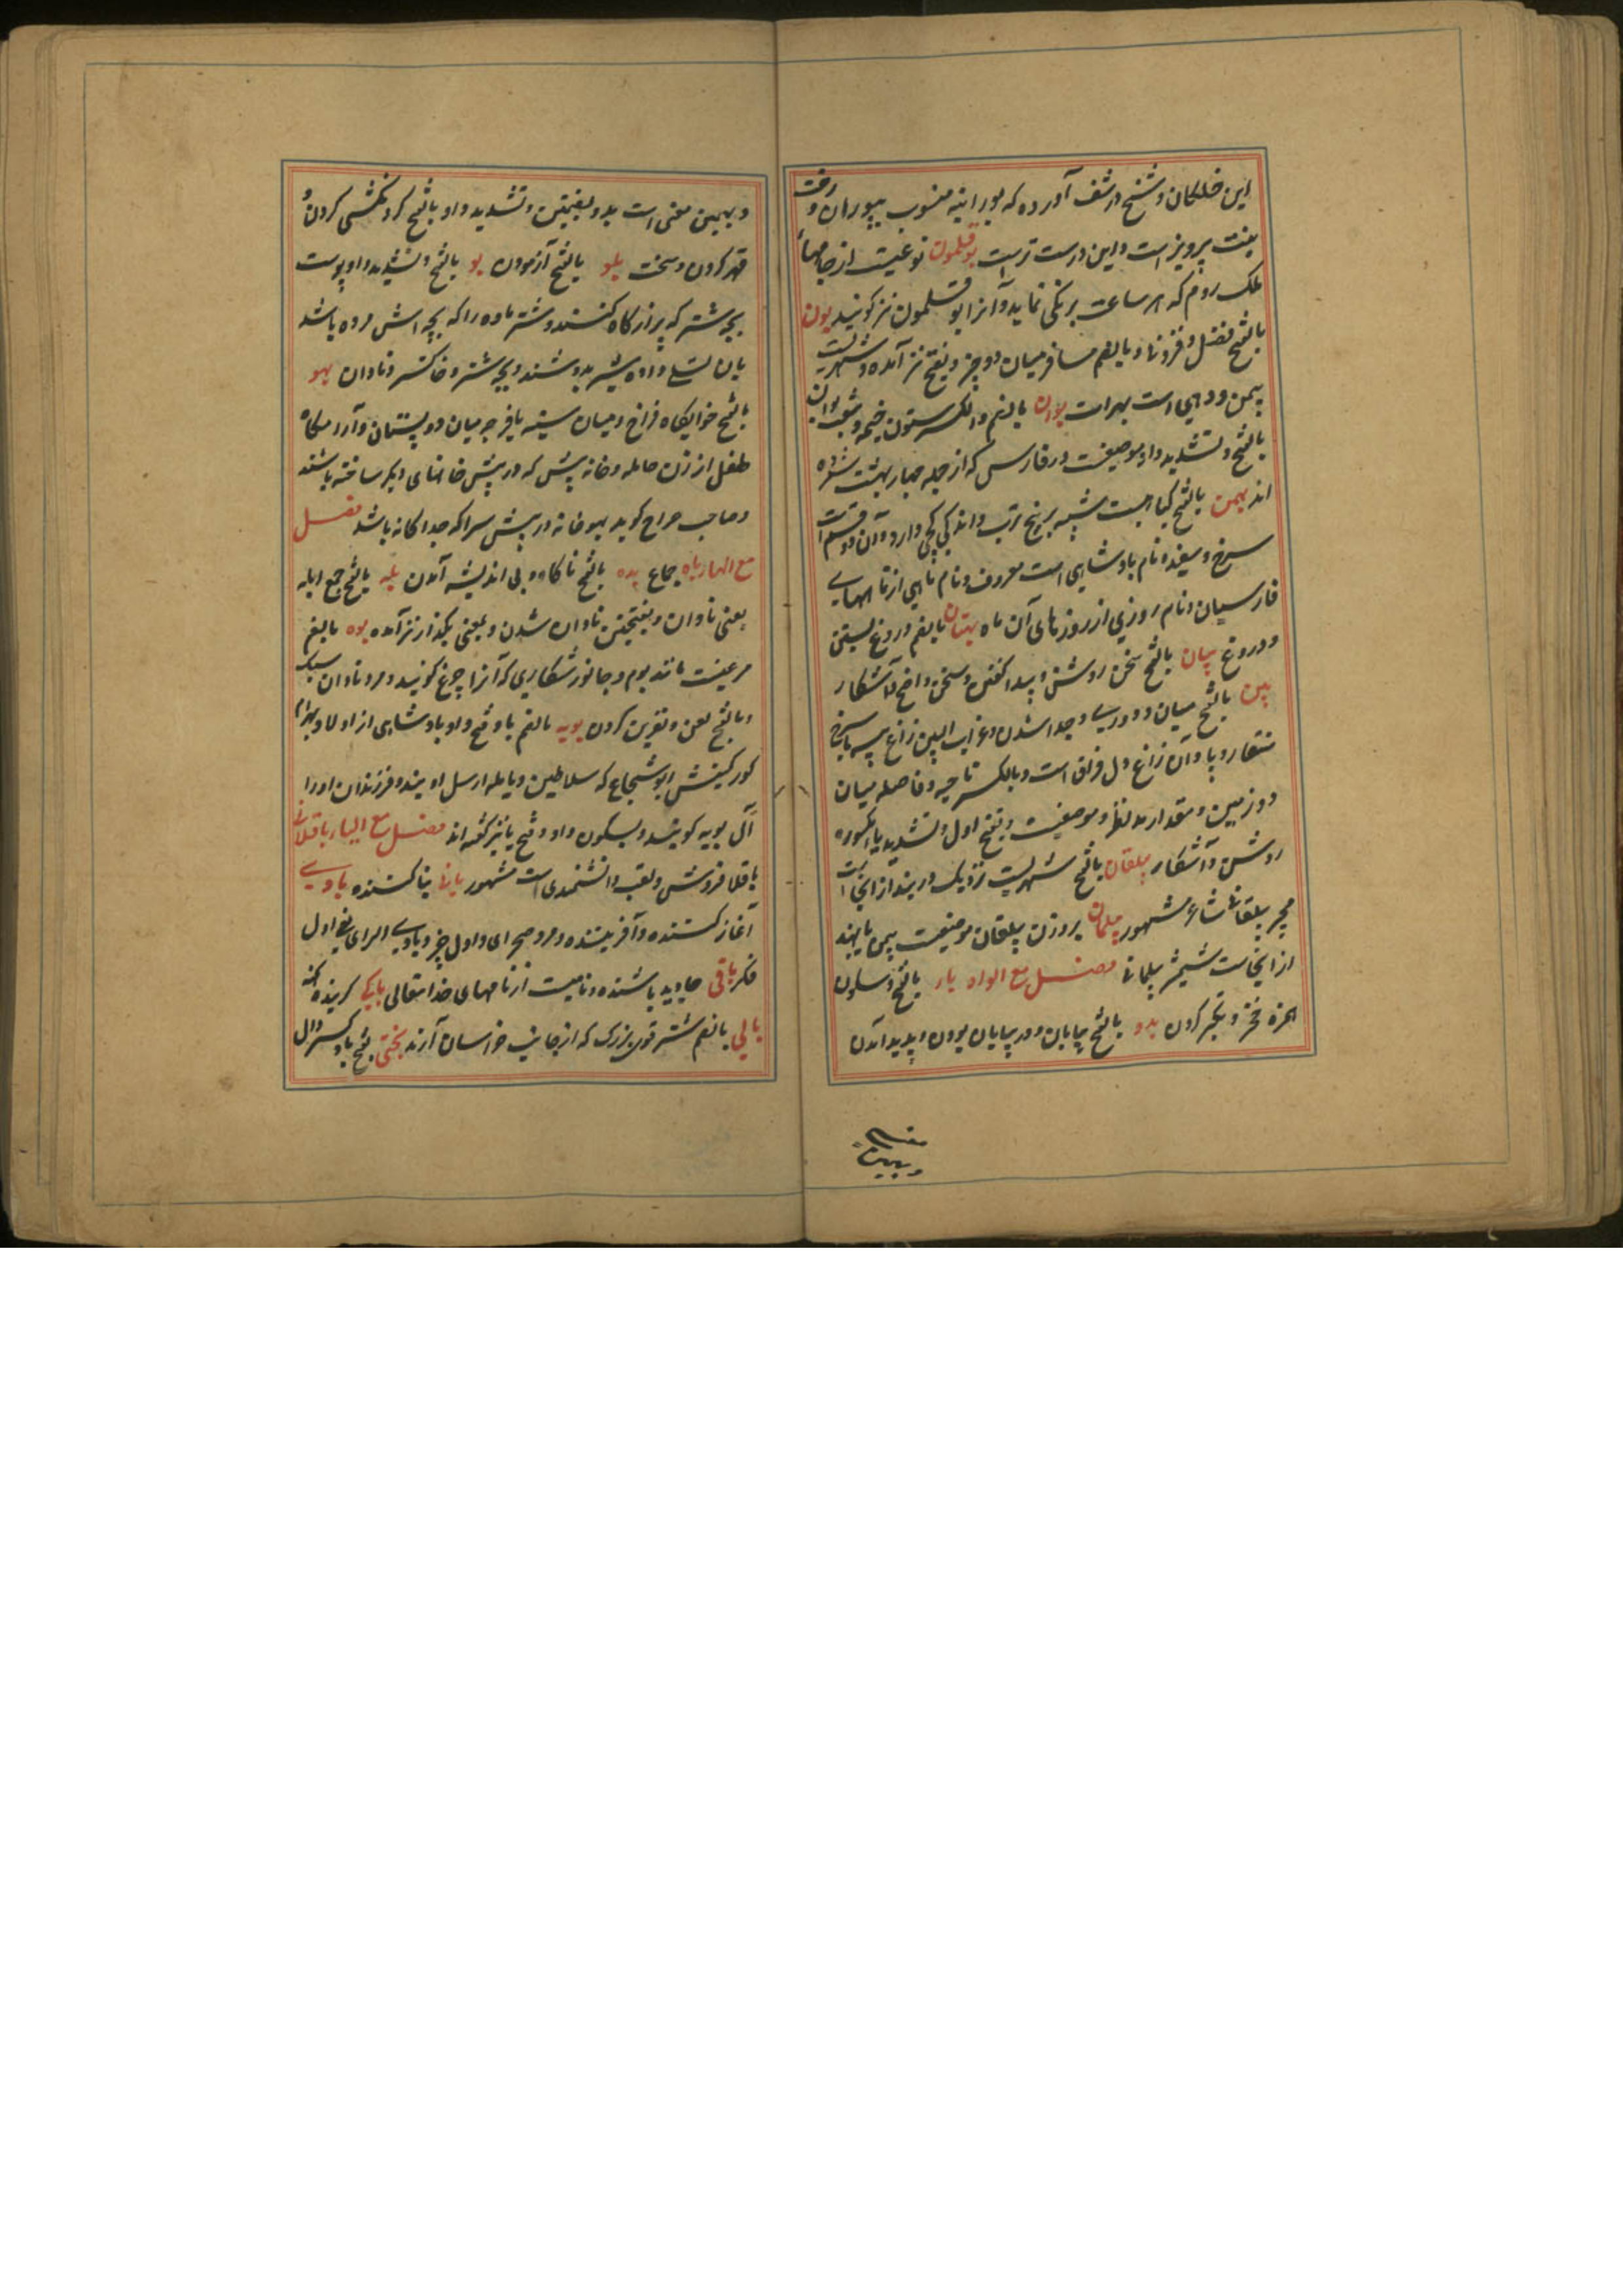 ابن خلکان و شیخ در شف آورده که بورانیه منسوب ببوران دخت
بنت پرویز است و این درست تر است بوقلمون نوعیست از جامهاء
ملک روم که هر ساعت برنکی نماید و آنرا ابو قلمون نیز کویند بون
بالفتح فضل و فزونی و بالضم مسافر میان دو چیز و بفتح نیز آمده و شهریست
بیمن و دهی است بهرات بوان بالضم و الکسر ستون خیمه و شعب بوان
بالفتح و تشدید واو موضعیست در فارس که از جمله چهار بهشت شمرده
اند بهمن بالفتح کیاهیست شبیه به بیخ ترب و اندکی کجی دارد و آن دو قسم است
سرخ و سفید و نام پادشاهی است معروف و نام ماهی از ماههای
فارسیان و نام روزی از روزهای آن ماه بهتان بالضم دروغ بستن
و دروغ بیان بالفتح سخن روشن و پیدا کفتن و سخن واضح و آشکار
بین بالفتح میان و دوری و جدا شدن و غراب البین زاغ سیه با سرخ
منقار و پا و آن زاغ دل فراق است و بالکسر ناحیه و فاصله میان
دو زمین و مقدار مد نظر و موضعیست و بفتح اول و تشدید یاء مکسوره
روشن و آشکار بیلقان بالفتح شهریست نزدیک دربند از انجاست
مجیر بیلقانی شاعر مشهور بیلمان بر وزن بیلقان موضعیست بیمن یا بهند
از انجاست شمشیر بیلمانی فصل مع الواو باو بالفتح و سکون
الهمزه فخر و تکبر کردن بدو بالفتح بیابان و در بیابان بودن و پدید آمدن
و بهمین
و بهمین معنی است بدو بضمتین و تشدید واو بالفتح کردنکشی کردن و
قهر کردن و سخت بلو بالفتح آزمودن بو بالفتح و تشدید واو پوست
بچه شتر که پر از کاه کنند و شتر ماده را که بچه اش مرده باشد
بان تسلی داده شیر بدوشند و بچه شتر و خاکستر و نادان بهو
بالفتح خوابکاه فراخ و میان سینه یا فرجه میان دو پستان و آرامکاه
طفل از زن حامله و خانه پیش که در پیش خانهای دیکر ساخته باشند
و صاحب صراح کوید بهو خانه در پیش سرا که جداکانه باشد فصل
مع الهاء باه جماع بده بالفتح ناکاه و بی اندیشه آمدن بله بالفتح جمع ابله
یعنی نادان و بفتحتین نادان شدن و بمعنی بکذار نیز آمده بوه بالضم
مرغیست مانند بوم و جانور شکاری که آنرا چرغ کویند و مرد نادان سبک
و بالفتح لعن و نفرین کردن بویه بالضم با و فتح واو پادشاهی از اولاد بهرام
کور کنیتش ابو شجاع که سلاطین دیالمه از نسل اویند و فرزندان او را
آل بویه کویند و بسکون واو و فتح یا نیز کفته اند فصل مع الیاء باقلانی
باقلا فروش و لقب دانشمندی است مشهور بانی بنا کننده بادی
آغاز کننده و آفریننده و مرد صحرای و اول چیز و بادی الرای یعنی اول
فکر باقی جاوید باشنده و نامیست از نامهای خدایتعالی باکی کرینده
بالی بالضم شتر قوی بزرک که از جانب خراسان آرند بختی بفتح با و کسر دال